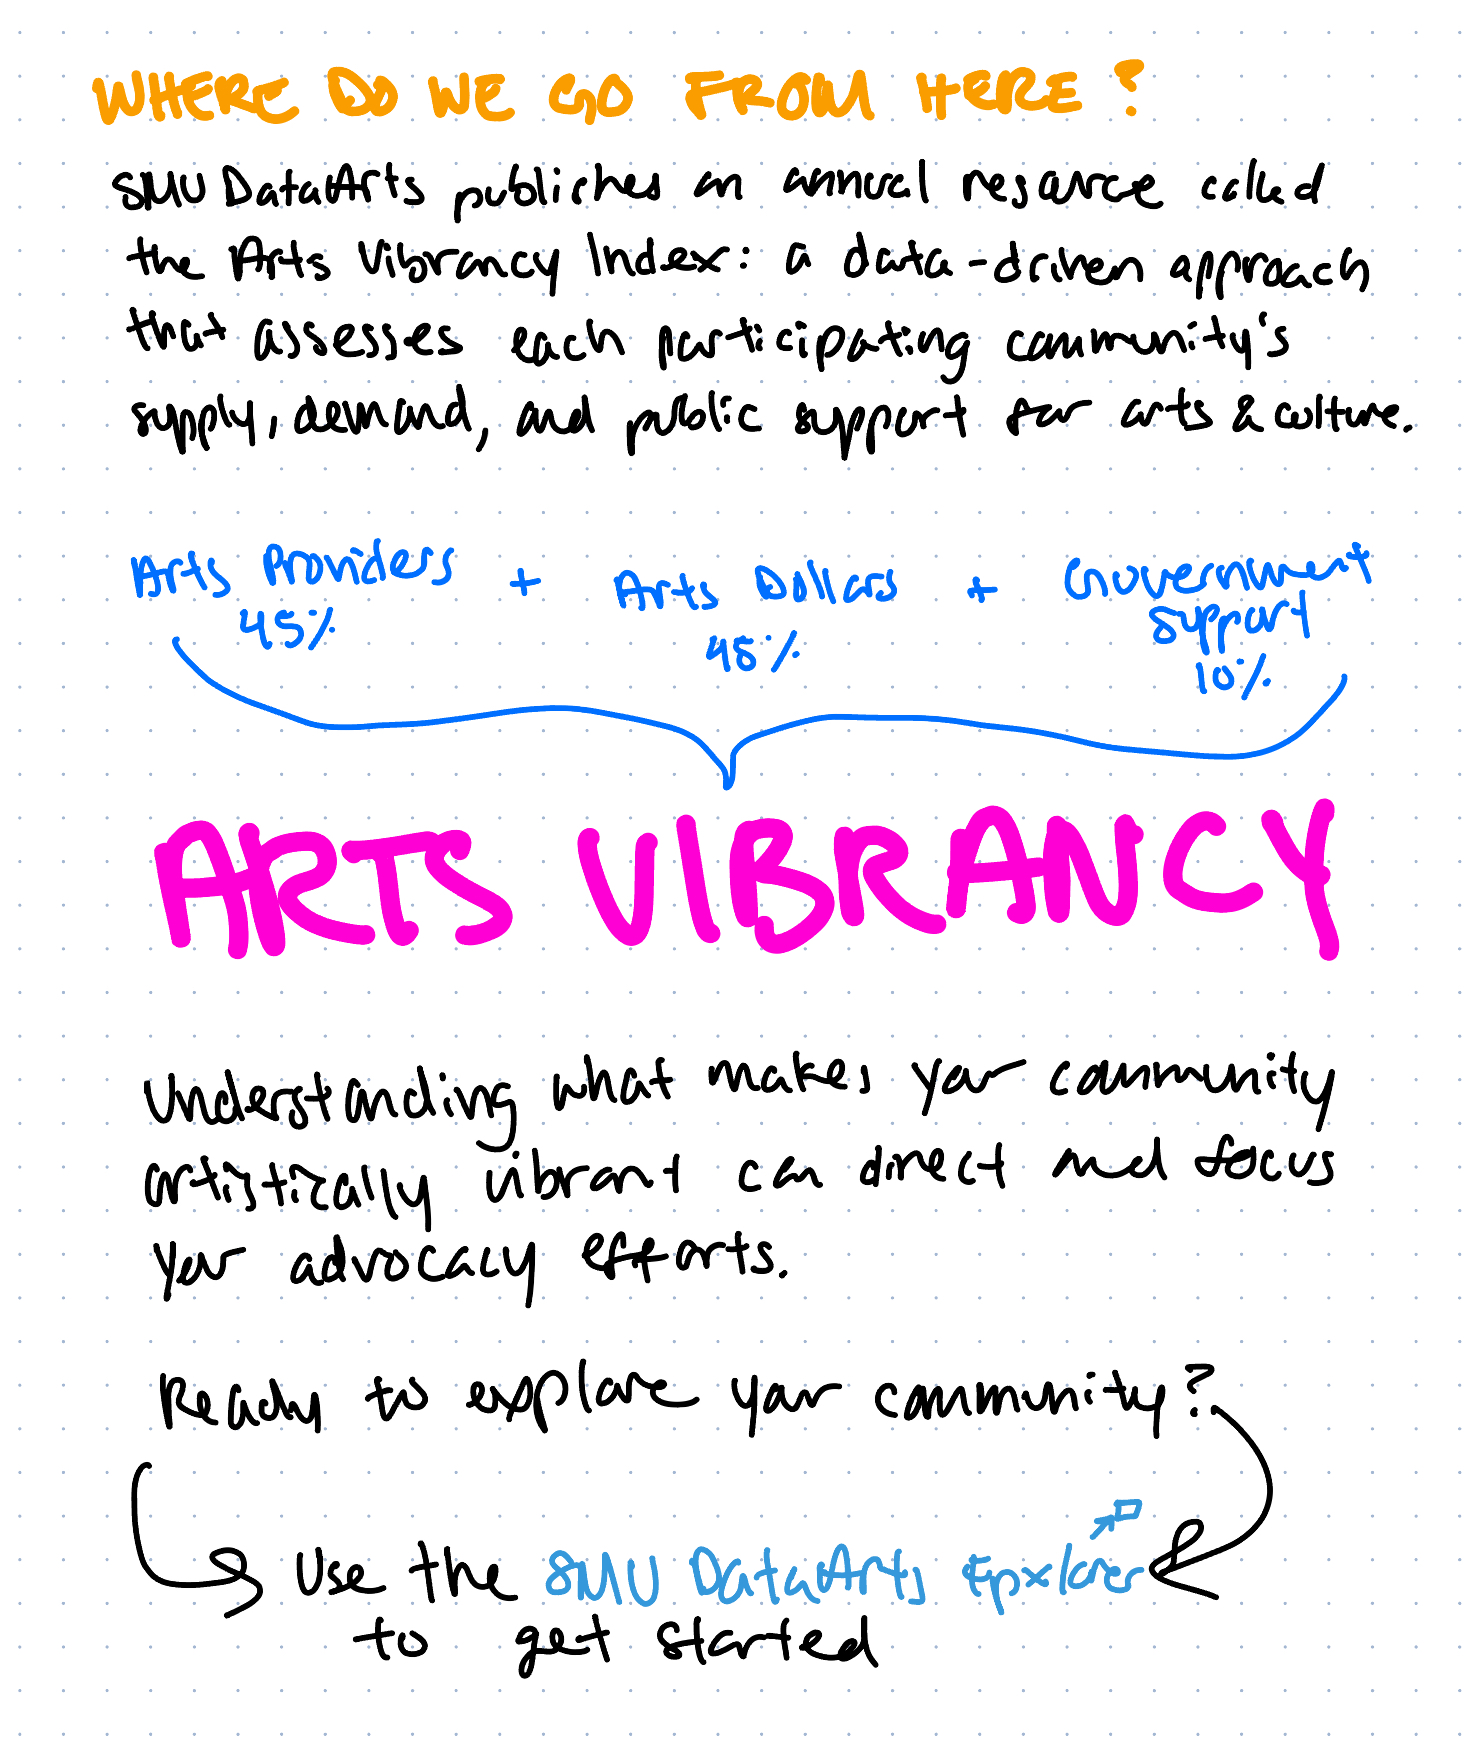 WHERE DO WE GO FROM HERE?
SMU DataArts publishes an annual resource called
the Arts Vibrancy Index: a data-driven approach
that assesses each participating community's
supply, demand, and public support for arts & culture.
Arts Providers + Arts Dollars + Government
support
45% 45% 10%
ARTS VIBRANCY
Understanding what makes your community
artistically vibrant can direct and focus
your advocacy efforts.
Ready to explore your community?
Use the SMU DataArts Epxlorer
to get started